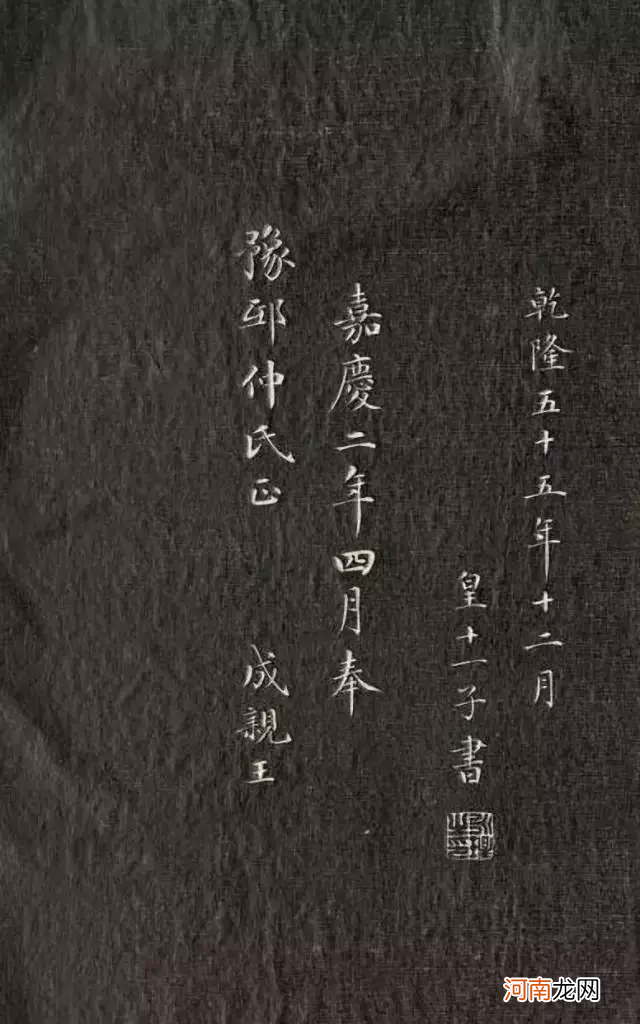 乾隆五十五年十二月
皇十一子書
永瑆之印
嘉慶二年四月奉
豫邨仲氏正 成親王
河南龙网